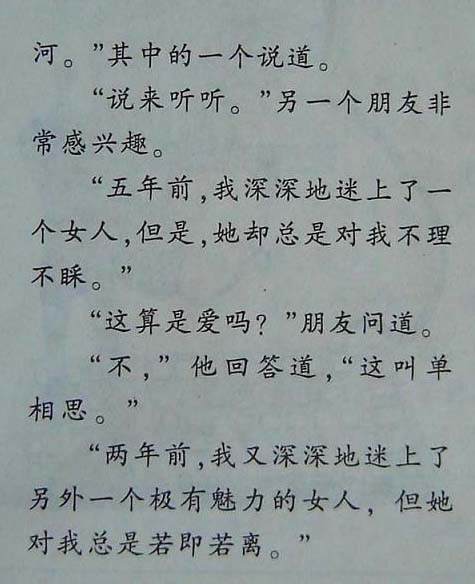 河。”其中的一个说道。
“说来听听。”另一个朋友非
常感兴趣。
“五年前,我深深地迷上了一
个女人,但是,她却总是对我不理
不睬。”
“这算是爱吗？”朋友问道。
“不,”他回答道,“这叫单
相思。”
“两年前,我又深深地迷上了
另外一个极有魅力的女人，但她
对我总是若即若离。”